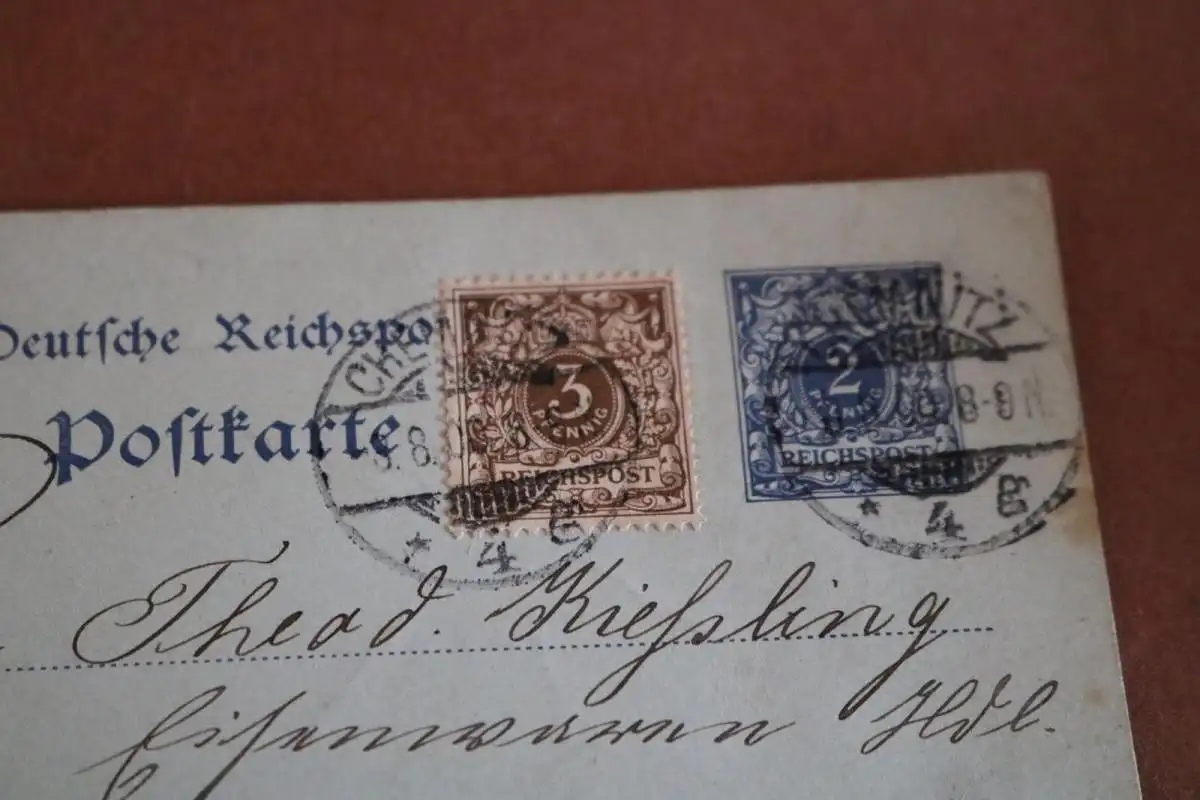 Deutsche Reichspo
Postkarte
3
PFENNIG
REICHSPOST
2
PFENNIG
REICHSPOST
CHE
8.
* 4 g
CHEMNITZ
8-9 N.
* 4 g
Theod. Kießling
Eisenwaren Hdl.